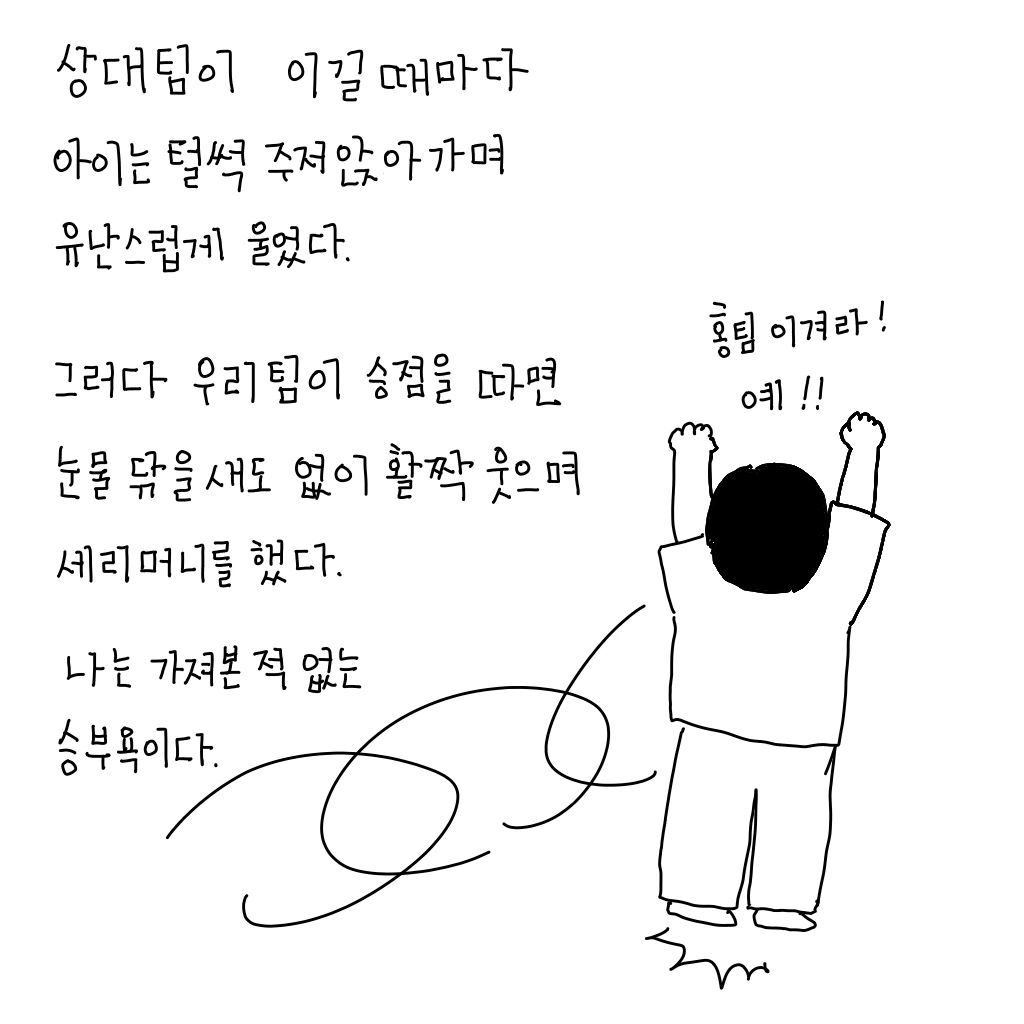 상대팀이 이길 때마다
아이는 털썩 주저앉아가며
유난스럽게 울었다.
그러다 우리팀이 승점을 따면
눈물 닦을새도 없이 활짝 웃으며
세리머니를 했다.
나는 가져본 적 없는
승부욕이다.
홍팀 이겨라!
예!!